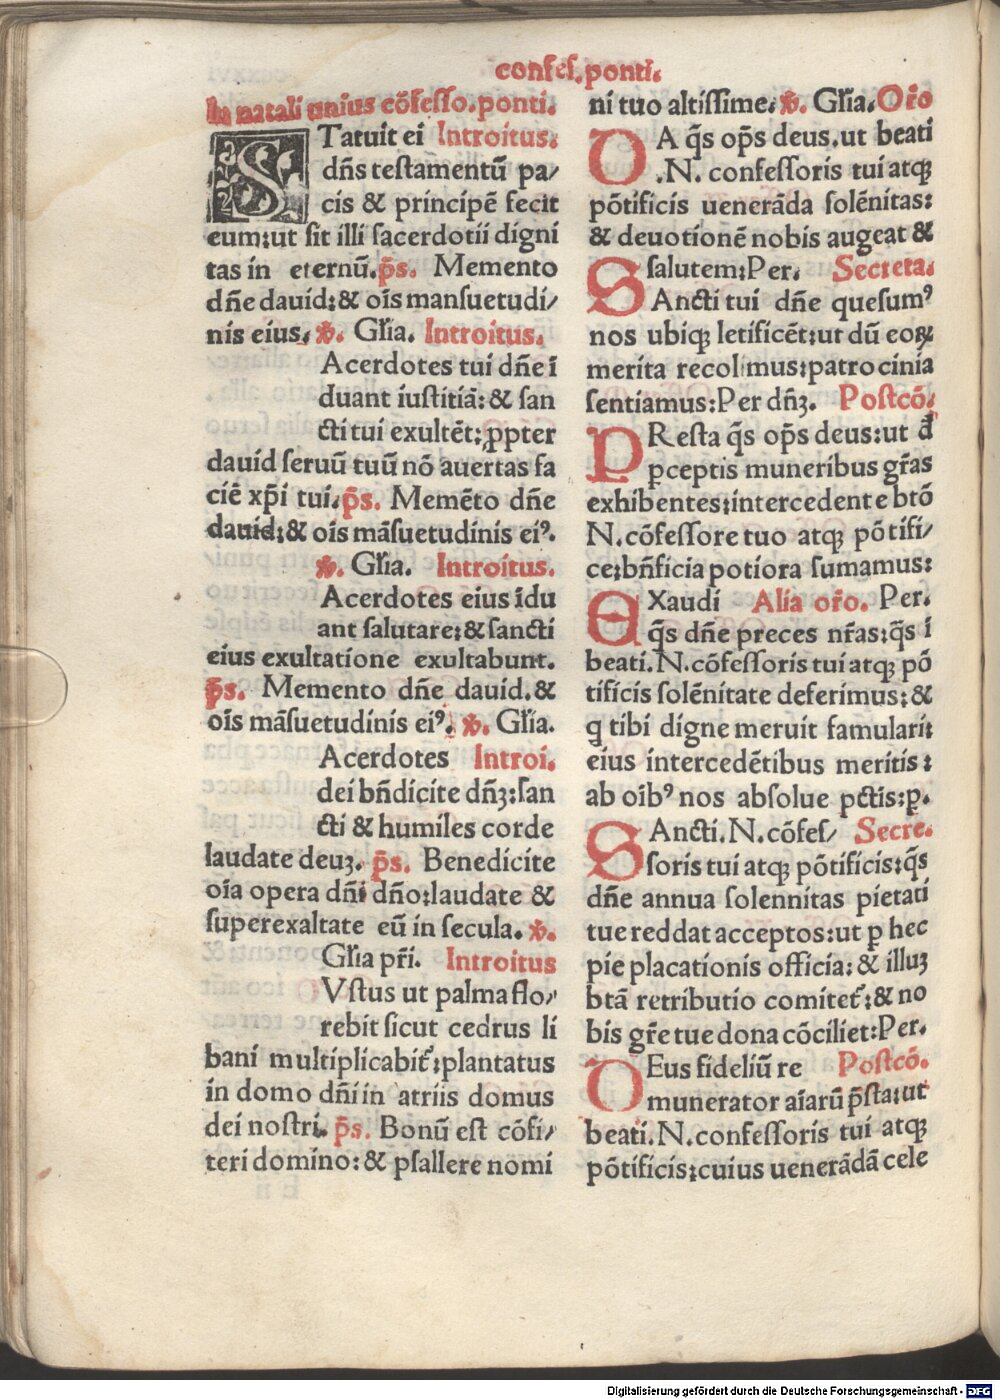 confes. ponti.
In natali unius cõfesso. ponti.
STatuit ei Introitus.
dñs testamentũ pa/
cis & principẽ fecit
eum: ut sit illi sacerdotii digni
tas in eternũ. p̃s. Memento
dñe dauid: & oĩs mansuetudi/
nis eius. ℣. Gl̃ia. Introitus.
Acerdotes tui dñe ĩ
duant iustitiã: & san
cti tui exultẽt: ꝓpter
dauid seruũ tuũ nõ auertas fa
ciẽ xp̃i tui. p̃s. Memẽto dñe
dauid: & oĩs mãsuetudinis eiꝰ.
℣. Gl̃ia. Introitus.
Acerdotes eius ĩdu
ant salutare: & sancti
eius exultatione exultabunt.
p̃s. Memento dñe dauid. &
oĩs mãsuetudinis eiꝰ. ℣. Gl̃ia.
Acerdotes Introi.
dei bñdicite dñꝫ: san
cti & humiles corde
laudate deuꝫ. p̃s. Benedicite
oĩa opera dñi dño: laudate &
superexaltate eũ in secula. ℣.
Gl̃ia pr̃i. Introitus
Vstus ut palma flo/
rebit sicut cedrus li
bani multiplicabit᷑: plantatus
in domo dñi in atriis domus
dei nostri. p̃s. Bonũ est cõfi/
teri domino: & psallere nomi
ni tuo altissime. ℣. Gl̃ia. Or̃o
DA q̃s op̃s deus. ut beati
.N. confessoris tui atqꝫ
põtificis uenerãda solẽnitas:
& deuotionẽ nobis augeat &
salutem: Per. Secreta.
SAncti tui dñe quesumꝰ
nos ubiqꝫ letificẽt: ut dũ eoꝝ
merita recolimus: patrocinia
sentiamus: Per dñꝫ. Postcõ.
PResta q̃s op̃s deus: ut d̃
ꝑceptis muneribus gr̃as
exhibentes: intercedente btõ
N. cõfessore tuo atqꝫ põtifi/
ce: bñficia potiora sumamus:
EXaudi Alia or̃o. Per.
q̃s dñe preces nr̃as: q̃s ĩ
beati. N. cõfessoris tui atqꝫ põ
tificis solẽnitate deferimus: &
q tibi digne meruit famulari:
eius intercedẽtibus meritis:
ab oibꝰ nos absolue pctis: ꝑ.
SAncti. N. cõfes/ Secre.
soris tui atqꝫ põtificis: q̃s
dñe annua solennitas pietati
tue reddat acceptos: ut ꝑ hec
pie placationis officia: & illuꝫ
btã retributio comitet᷑: & no
bis gr̃e tue dona cõciliet: Per.
DEus fideliũ re Postcõ.
munerator aĩarũ p̃sta: ut
beati. N. confessoris tui atqꝫ
põtificis: cuius uenerãdã cele
Digitalisierung gefördert durch die Deutsche Forschungsgemeinschaft - DFG